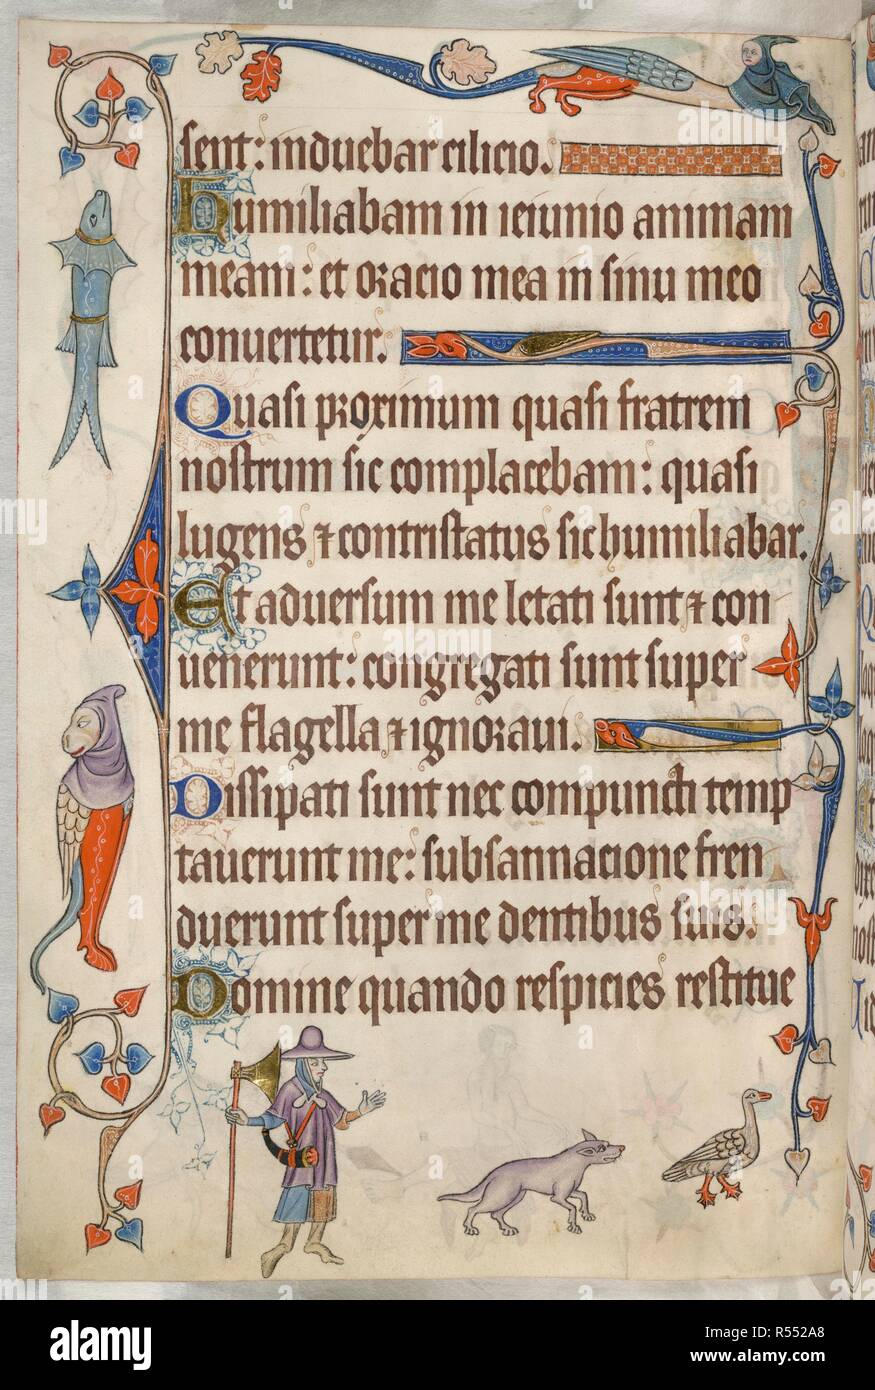 sent: induebar cilicio.
humiliabam in ieiunio animam
meam: et oracio mea in sinu meo
conuertetur.
Quasi proximum quasi fratrem
nostrum sic complacebam: quasi
lugens ⁊ contristatus sic humiliabar.
Et aduersum me letati sunt ⁊ con
uenerunt: congregati sunt super
me flagella ⁊ ignoraui.
Dissipati sunt nec compuncti temp
tauerunt me: subsannacione fren
duerunt super me dentibus suis.
Domine quando respicies restitue
alamy
Image ID: R552A8
www.alamy.com